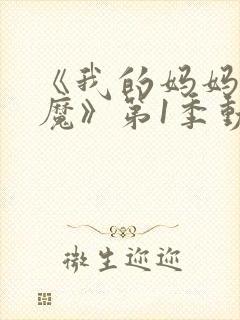 《我的妈妈
魔》第1季動
微生迩迩